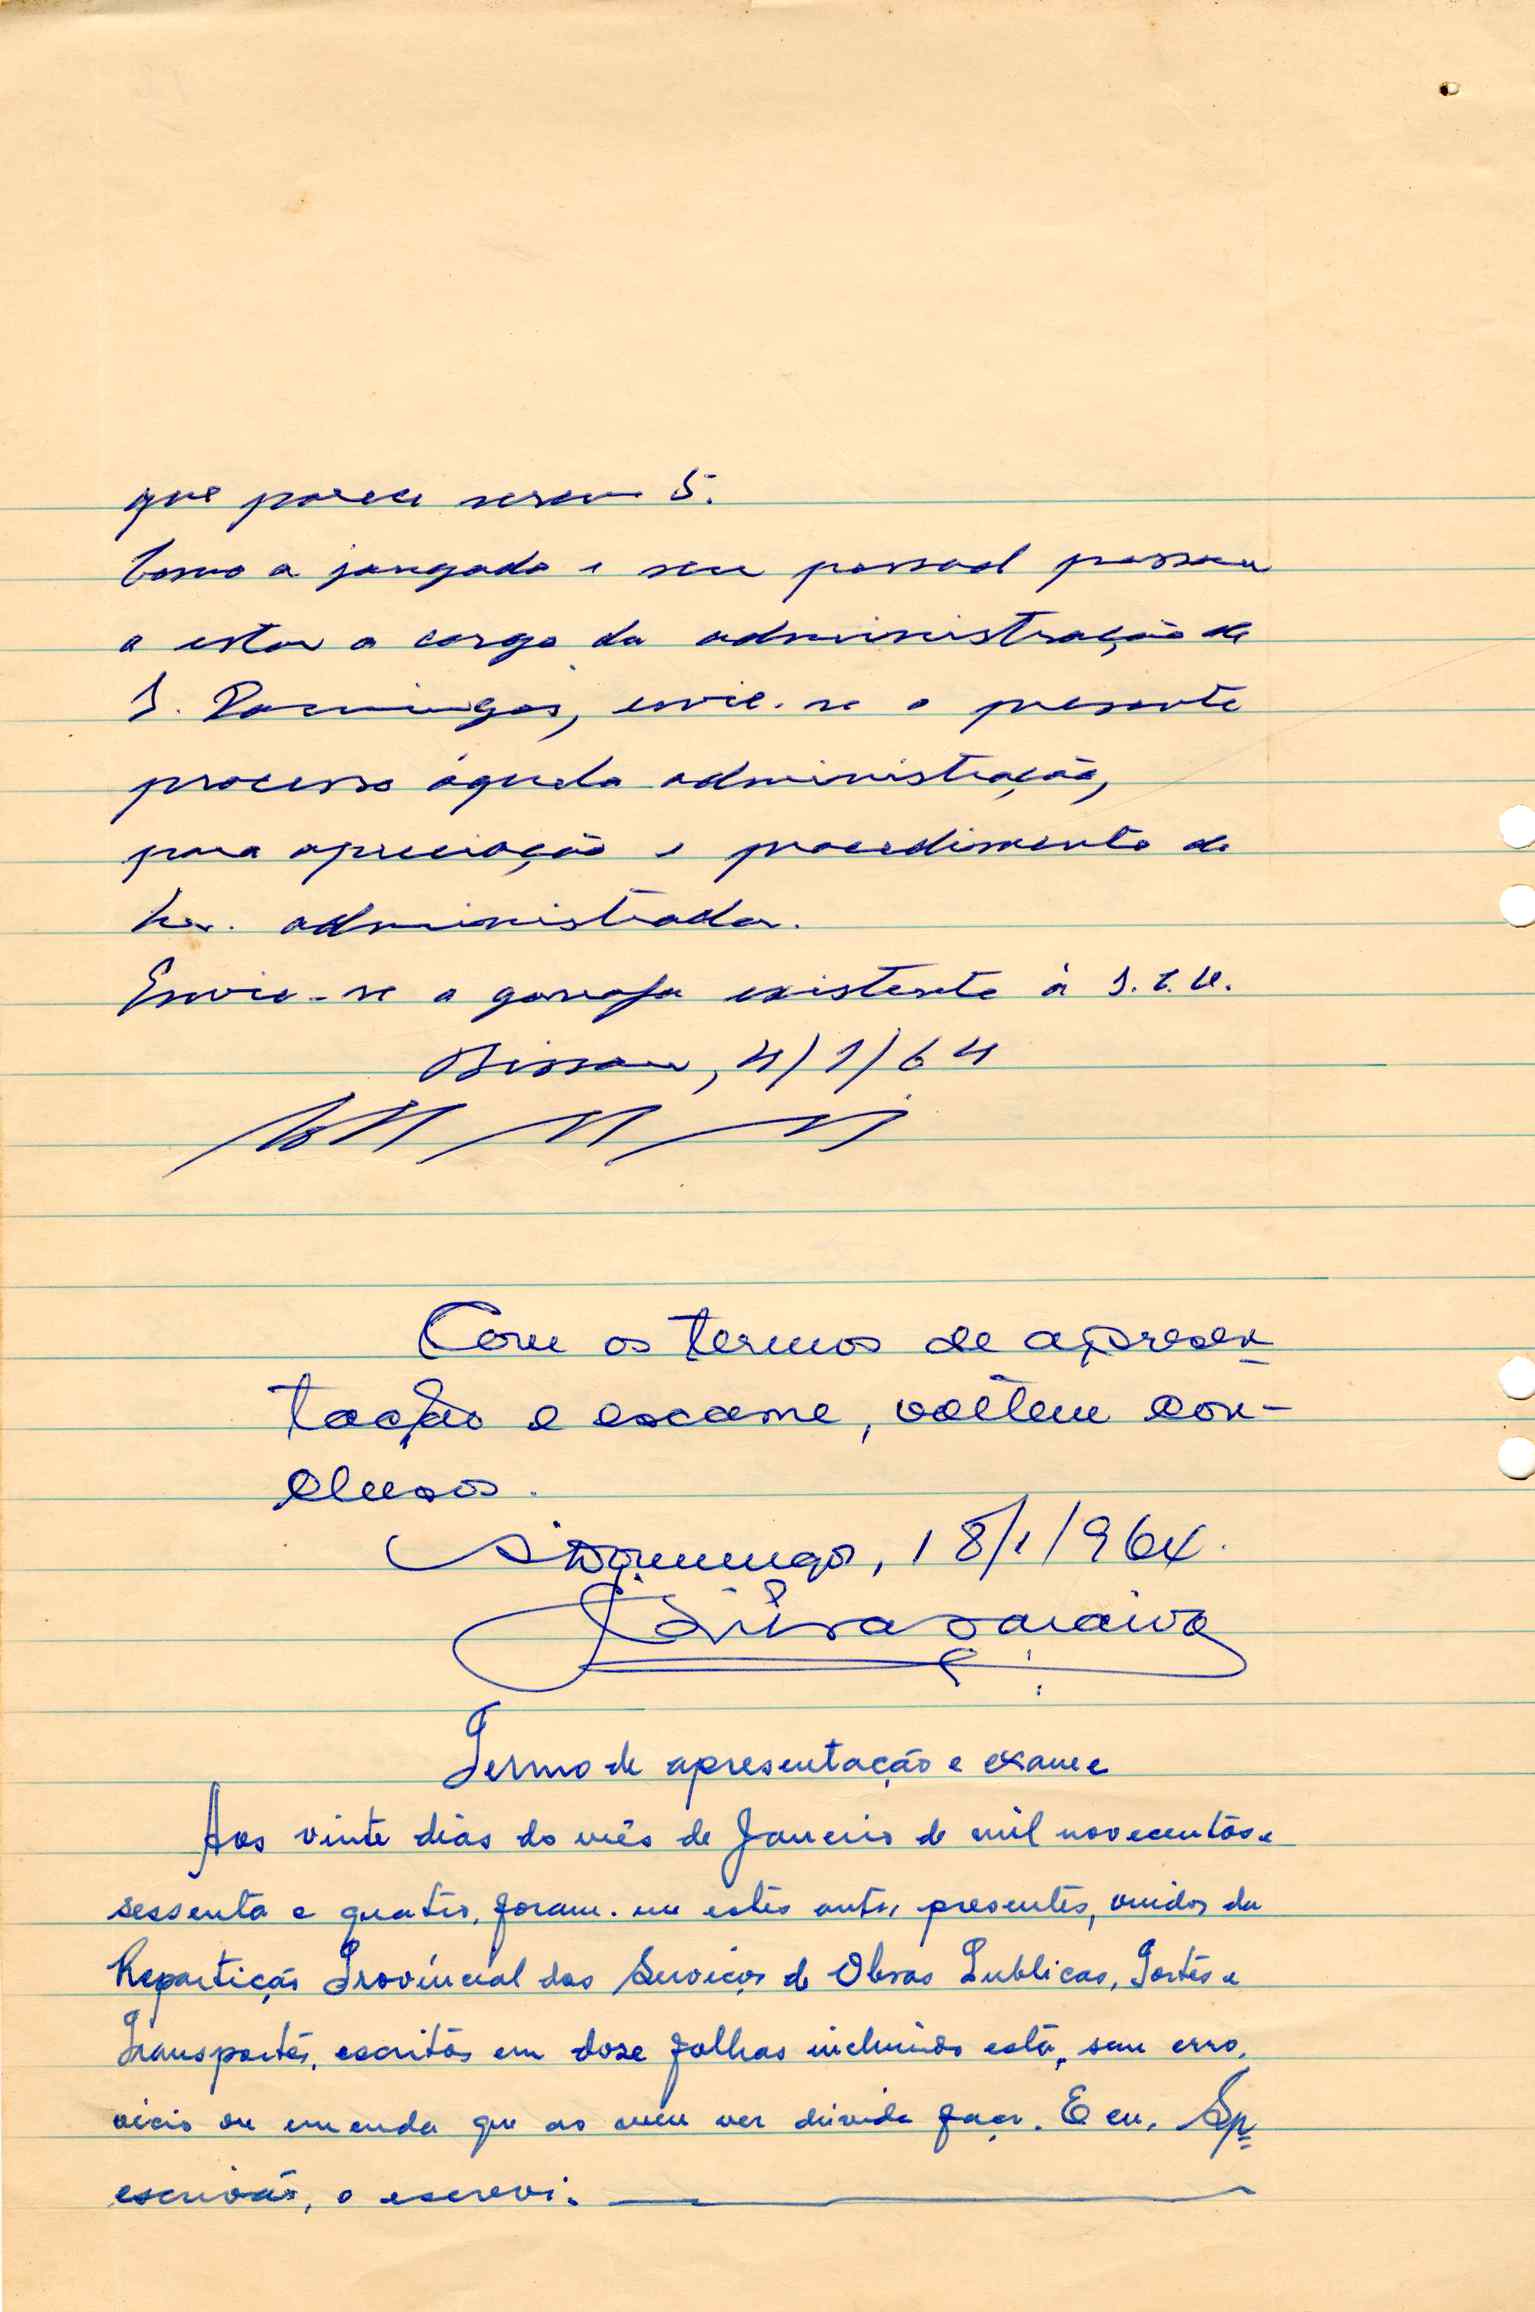 que parece serem 5.
Como a jangada e seu pessoal passou
a estar a cargo da administração de
S. Domingos, envie-se o presente
processo àquela administração,
para apreciação e procedimento do
Snr. administrador.
Envie-se a garrafa existente à
Bissau, 4/1/64
Com os termos de apresen-
tação e exame, voltem con-
clusos.
S. Domingos, 18/1/964.
Saraiva
Termo de apresentação e exame
Aos vinte dias do mês de Janeiro de mil novecentos e
sessenta e quatro, foram-me estes autos presentes, vindos da
Repartição Provincial dos Serviços de Obras Publicas, Portos e
Transportes, escritos em doze folhas incluindo esta, sem erro,
vicio ou emenda que ao meu ver dúvida faça. E eu,
escrivão, o escrevi.